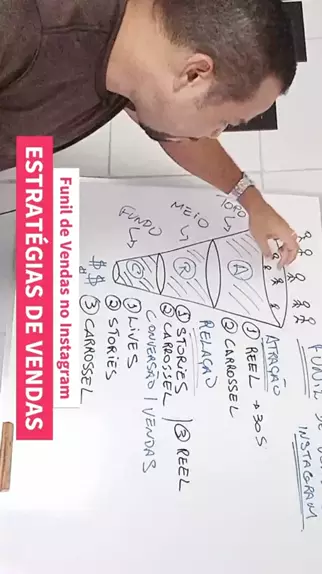 Funil de Vendas no Instagram
ESTRATÉGIAS DE VENDAS
FUNIL DE
INSTAGRAM
TOPO
MEIO
FUNDO
A
R
C
$$
ATRAÇÃO
① REEL → 30 S
② CARROSSEL
RELAÇÃO
① STORIES | ③ REEL
② CARROSSEL
CONVERSÃO | VENDAS
① LIVES
② STORIES
③ CARROSSEL